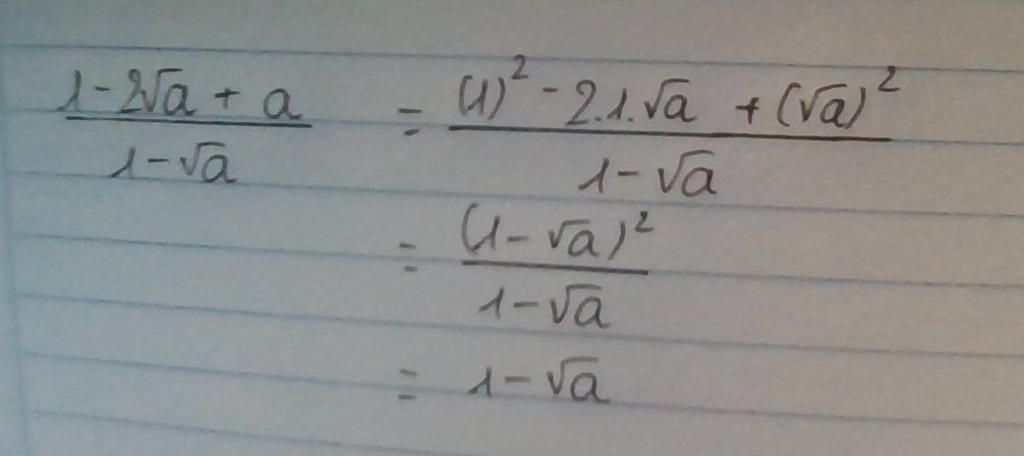 (1-2√a + a)/(1-√a) = ((1)² - 2.1.√a + (√a)²)/(1-√a)
= (1-√a)²/(1-√a)
= 1-√a